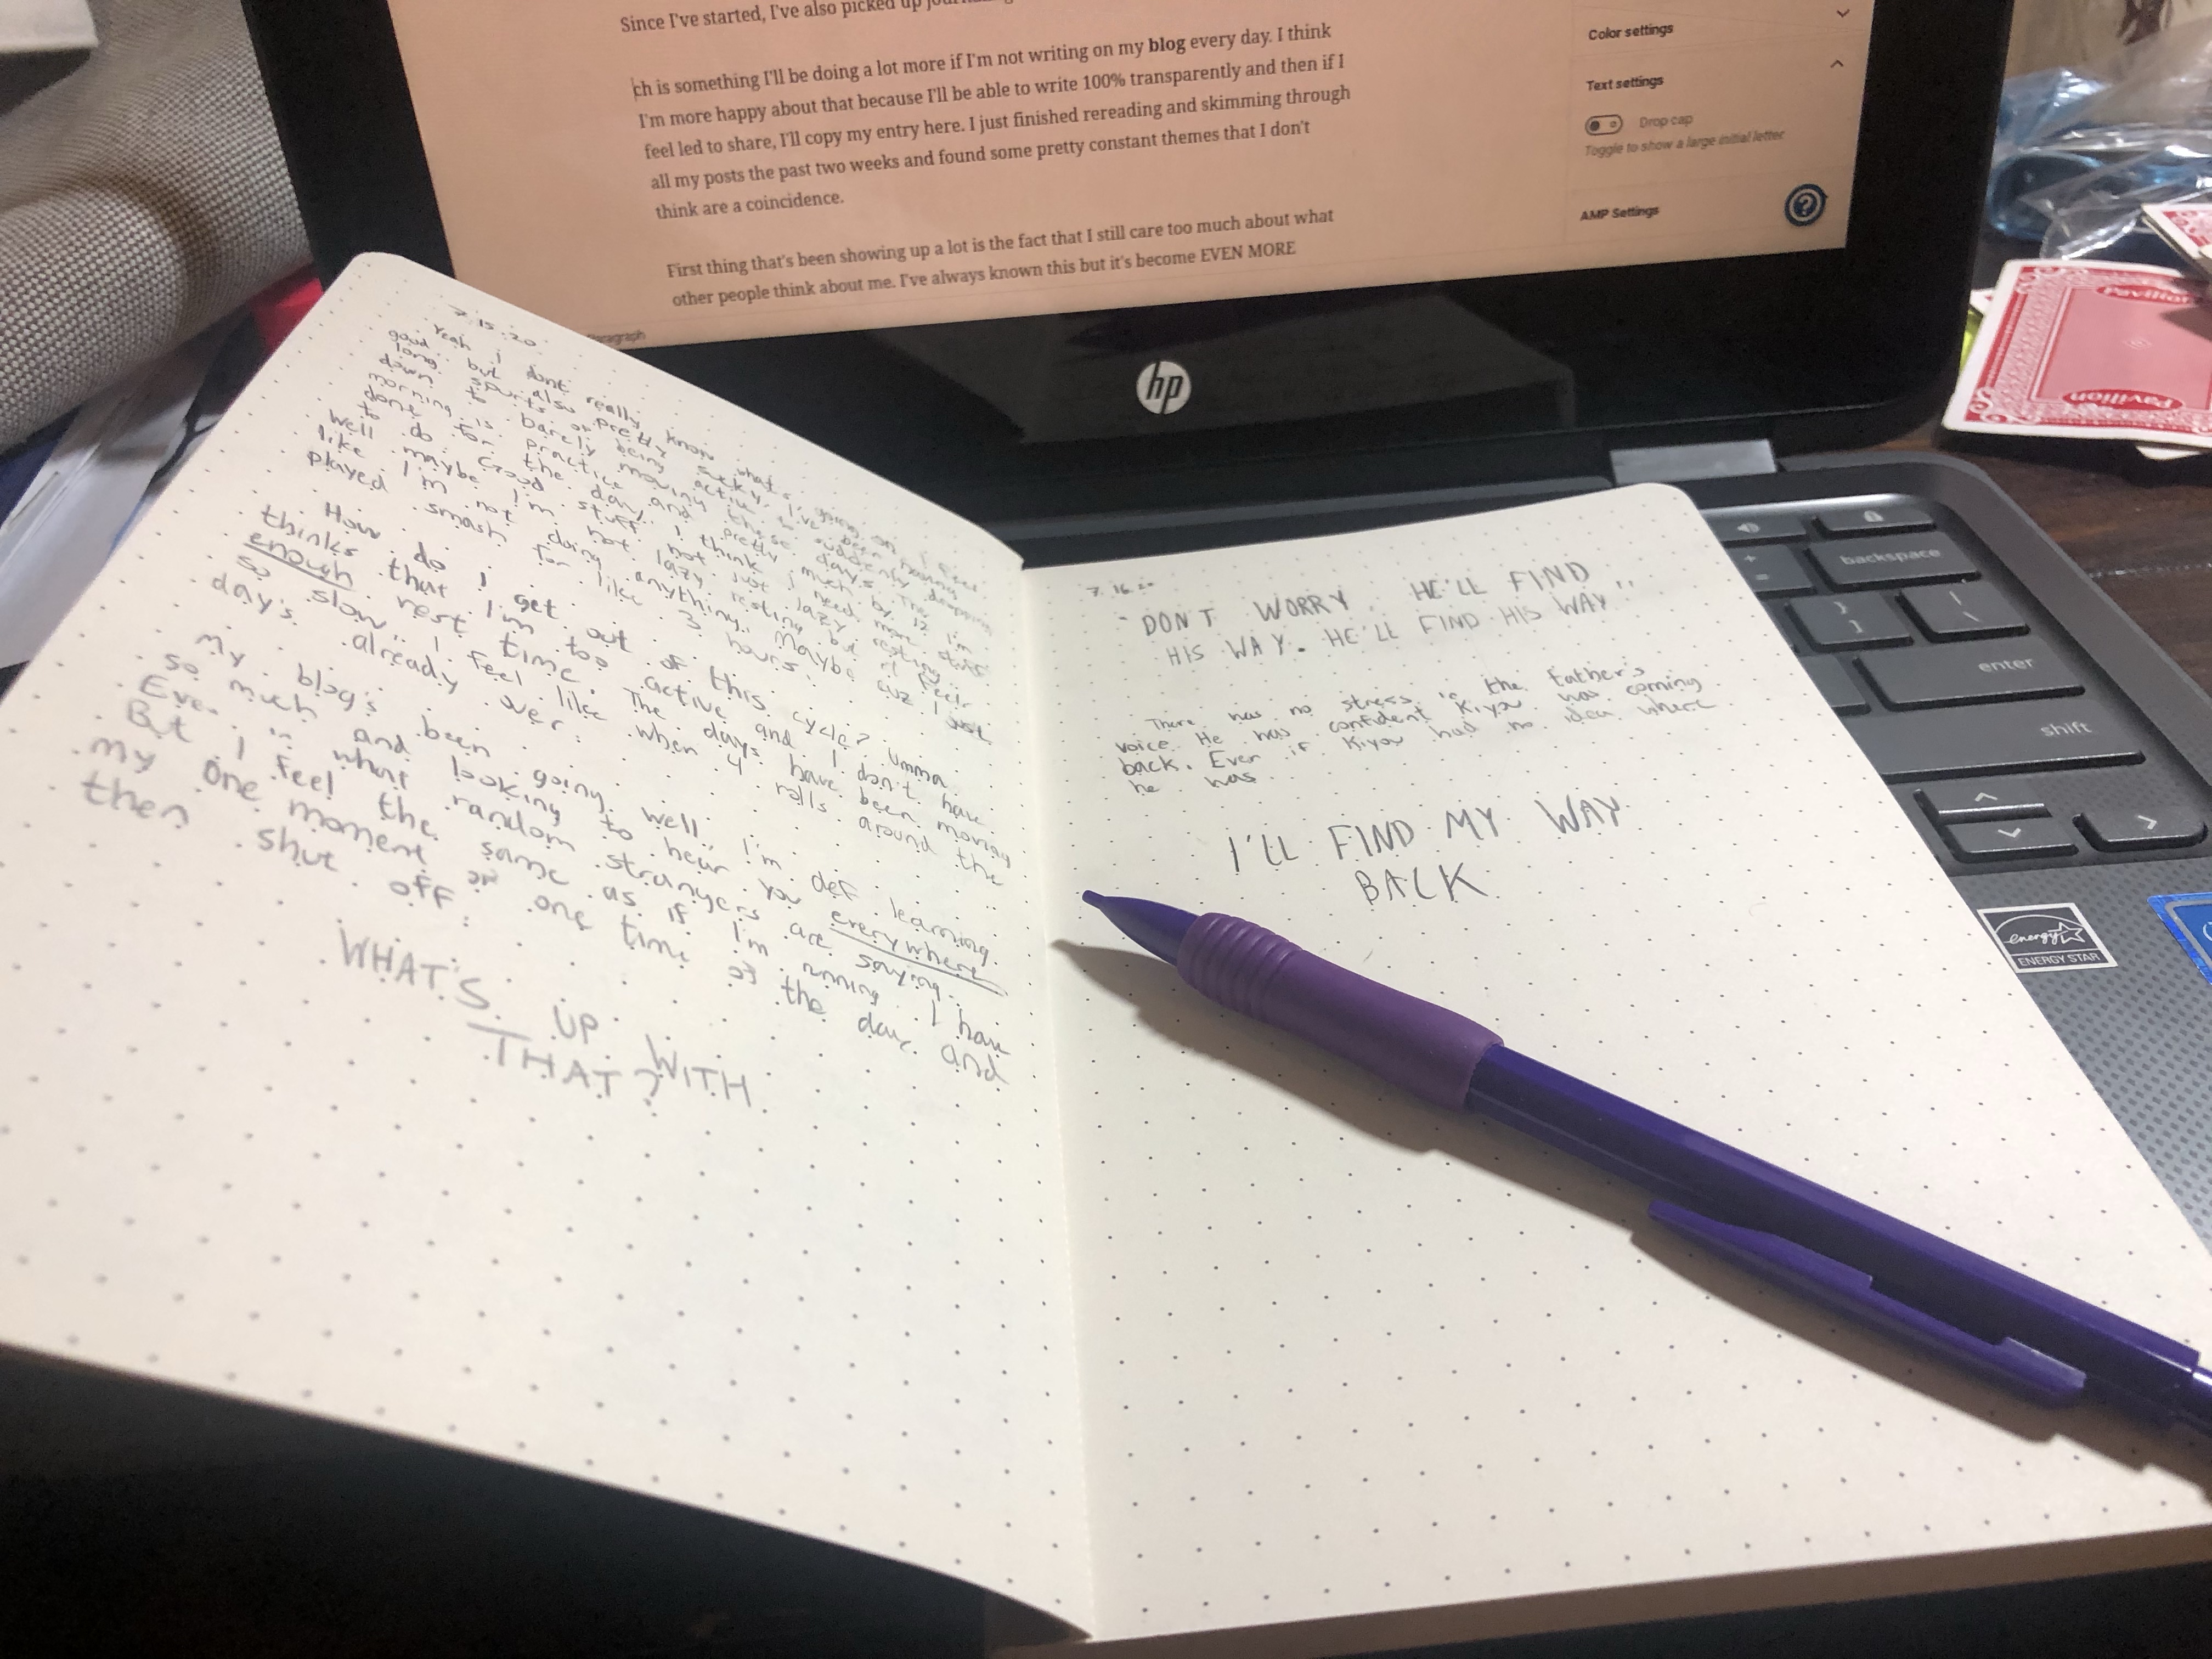 Since I've started, I've also picked up
ch is something I'll be doing a lot more if I'm not writing on my blog every day. I think
I'm more happy about that because I'll be able to write 100% transparently and then if I
feel led to share, I'll copy my entry here. I just finished rereading and skimming through
all my posts the past two weeks and found some pretty constant themes that I don't
think are a coincidence.
First thing that's been showing up a lot is the fact that I still care too much about what
other people think about me. I've always known this but it's become EVEN MORE
Paragraph
Color settings
Text settings
Drop cap
Toggle to show a large initial letter
AMP Settings
hp
Pavilion
Pavilion
backspace
+
=
}
]
|
\
enter
shift
energy
ENERGY STAR
7.15.20
Yeah I dont really know what's going on. I been
good but also pretty sucky. I've been having
long spurts of being active & suddenly dropping
down to barely moving these days. The
morning is practice and pretty much by 12 I'm
done for the day. I think I need more stuff
to do. Good stuff not just lazy resting.
Well maybe I'm not lazy resting but it feels
like I'm not doing anything. Maybe cuz I just
played smash for like 3 hours.
How do I get out of this cycle? Umma
thinks that I'm too active and I don't have
enough rest time. The days have been moving
so slow.. I feel like when 4 rolls around the
day's already over.
My blog's been going well.. I'm def learning
so much and looking to hear you everywhere
Even in what random strangers are saying.
But I feel the same as if I'm running. I have
my one moment or one time of the day and
then shut off.
WHAT'S UP WITH
THAT?
7.16.20
"DON'T WORRY. HE'LL FIND
HIS WAY. HE'LL FIND HIS WAY"
There was no stress in the father's
voice. He was confident Kiyou was coming
back. Even if Kiyou had no idea where
he was
I'LL FIND MY WAY
BACK